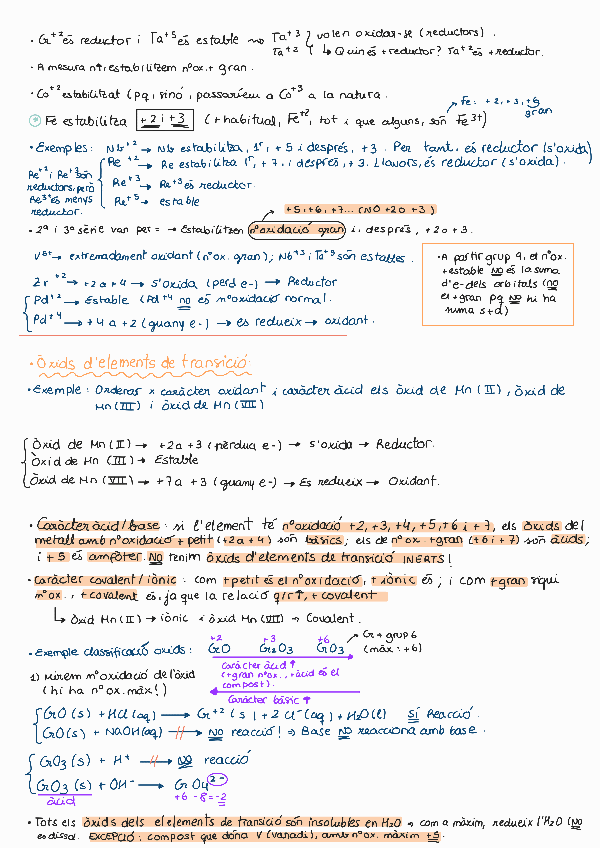 • Cr+2 és reductor i Ta+5 és estable → Ta+3 Ta+2 } volen oxidar-se (reductors)
↳ Quin és + reductor? Ta+2 és + reductor.
• A mesura n↑, estabilitzem nºox. + gran.
• Co+2 estabilitzat (pq, sinó, passaríem a Co+3 a la natura.
Fe: +2, +3, +6
gran
→ Fe estabilitza +2 i +3 (+ habitual, Fe+2, tot i que alguns, són Fe3+)
• Exemples: Nb+2 → Nb estabilitza, 1r, +5 i després, +3. Per tant, és reductor (s'oxida)
Re+2 → Re estabilitza 1r, +7, i després, +3. Llavors, és reductor (s'oxida).
Re+3 → Re+3 és reductor.
Re+5 → estable
Re+2 i Re+3 són
reductors, però
Re3+ és menys
reductor.
+5 i +6, +7... (NO +2 o +3)
• 2ª i 3ª sèrie van per = → Estabilitzen nºoxidació gran i, després, +2 o +3.
V5+ → extremadament oxidant (nºox. gran); Nb+3 i Ta+5 són estables.
Zr+2 → +2 a +4 → s'oxida (perd e-) → Reductor
Pd+2 → Estable (Pd+4 no és nºoxidació normal.
Pd+4 → +4 a +2 (guany e-) → es redueix → oxidant.
• A partir grup 9, el nºox.
+ estable NO és la suma
d'e- dels orbitals (no
el + gran pq NO hi ha
suma s+d)
• Òxids d'elements de transició:
• Exemple: Ordenar x caràcter oxidant i caràcter àcid els òxid de Mn (II), òxid de
Mn (III) i òxid de Mn (VII)
Òxid de Mn (II) → +2 a +3 (pèrdua e-) → s'oxida → Reductor.
Òxid de Mn (III) → Estable
Òxid de Mn (VII) → +7 a +3 (guany e-) → Es redueix → Oxidant.
• Caràcter àcid/base: si l'element té nºoxidació +2, +3, +4, +5, +6 i +7, els òxids del
metall amb nºoxidació + petit (+2 a +4) són bàsics; els de nºox. + gran (+6 i +7) són àcids;
i +5 és amfòter. NO tenim òxids d'elements de transició INERTS!
• Caràcter covalent/iònic: com + petit és el nºoxidació, + iònic és; i com + gran sigui
nºox., + covalent és, ja que la relació q/r↑, + covalent
↳ Òxid Mn (II) → iònic i òxid Mn (VII) → Covalent.
• Exemple classificació òxids: +2 CrO +3 Cr2O3 +6 CrO3 → Cr → grup 6
(màx: +6)
Caràcter àcid ↑
(+ gran nºox., + àcid és el
compost).
Caràcter bàsic ↑
1) Mirem nºoxidació de l'òxid
(hi ha nºox. màx!)
CrO (s) + HCl (aq) → Cr+2 (s) + 2 Cl- (aq) + H2O (l) SÍ Reacció.
CrO (s) + NaOH (aq) → NO reacció! ⇒ Base NO reacciona amb base.
CrO3 (s) + H+ → NO reacció
CrO3 (s) + OH- → CrO4 2-
àcid
+6 -8 = -2
• Tots els òxids dels elements de transició són insolubles en H2O → com a màxim, redueix l'H2O (NO
es dissol. EXCEPCIÓ: compost que dóna V (vanadi), amb nºox. màxim +5.